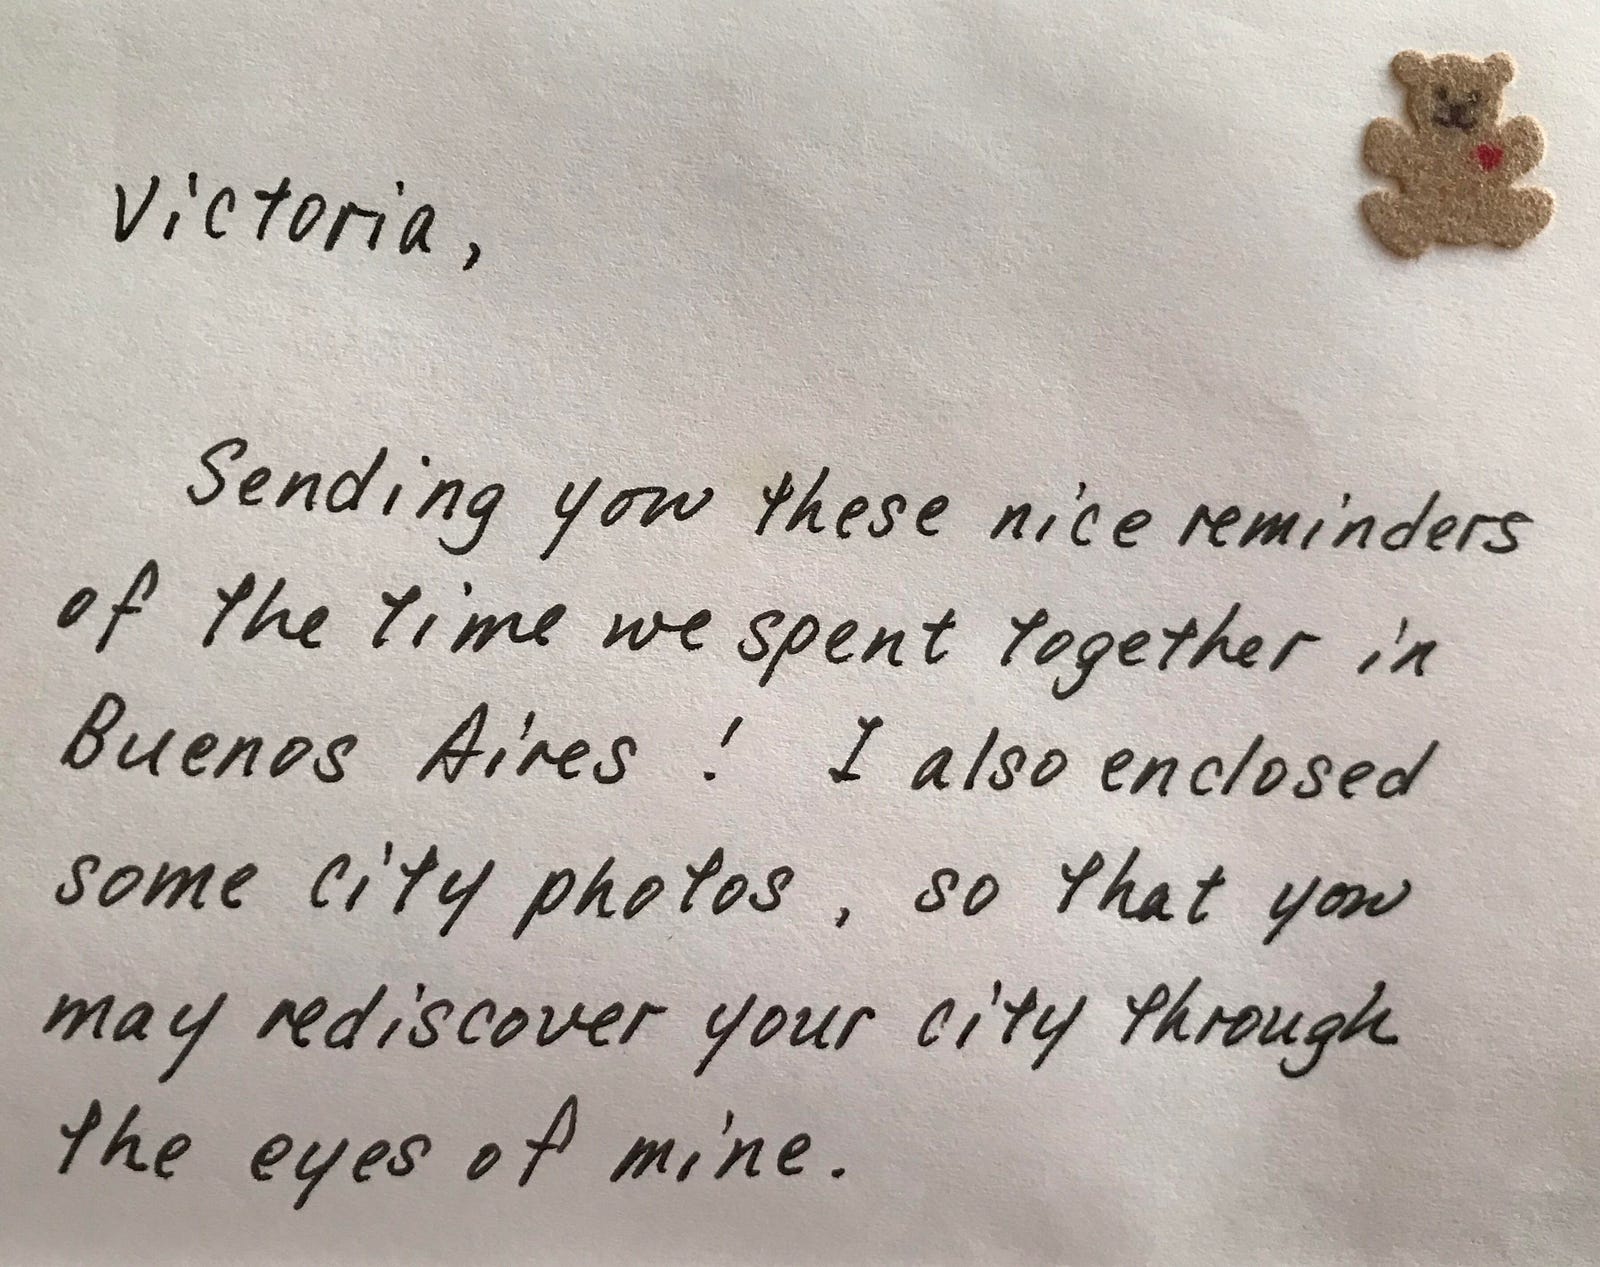 Victoria,
Sending you these nice reminders
of the time we spent together in
Buenos Aires ! I also enclosed
some city photos , so that you
may rediscover your city through
the eyes of mine.